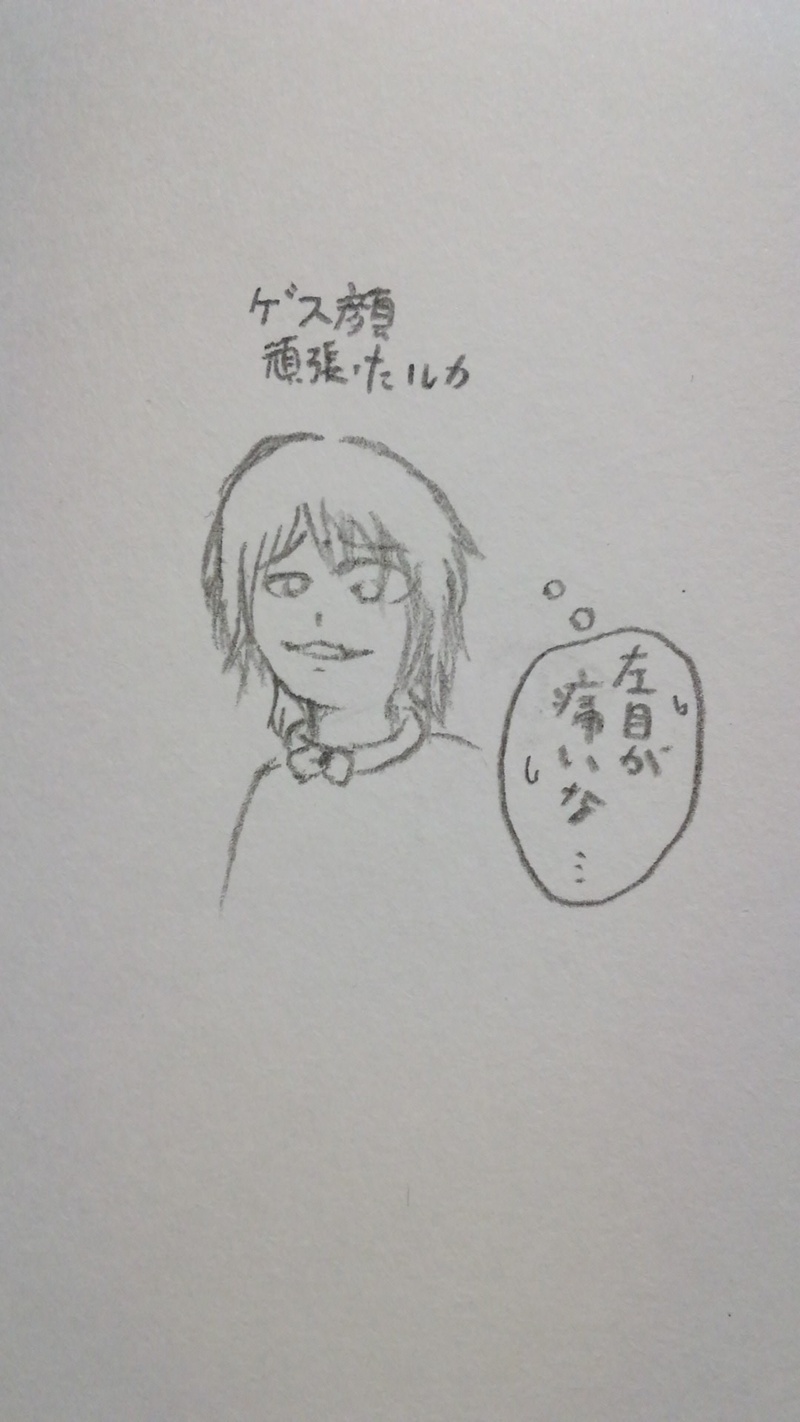 ゲス顔
頑張ったルカ
左目が
痛いな…